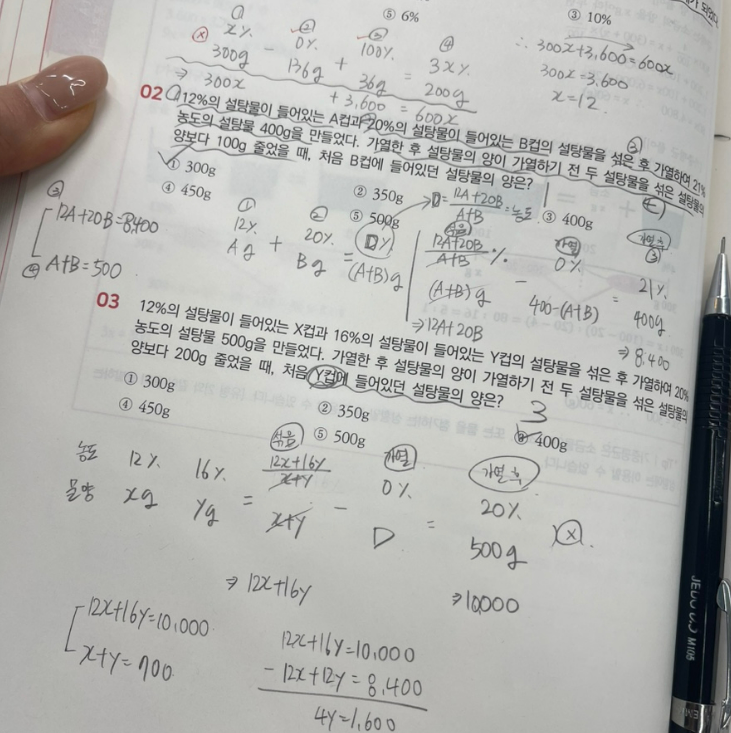 ⑤ 6%
③ 10%
① ② ③ ④
x%. 0%. 100%. 3x%.
300g - 136g + 36g = 200g
⇒ 300x + 3,600 = 600x
∴ 300x+3,600=600x
300x=3,600
x=12
02 12%의 설탕물이 들어있는 A컵과 20%의 설탕물이 들어있는 B컵의 설탕물을 섞은 후 가열하여 21%
농도의 설탕물 400g을 만들었다. 가열한 후 설탕물의 양이 가열하기 전 두 설탕물을 섞은 설탕물의
양보다 100g 줄었을 때, 처음 B컵에 들어있던 설탕물의 양은?
① 300g
② 350g
③ 400g
④ 450g
⑤ 500g
③ 12A+20B=8,400
④ A+B=500
① ②
12%. 20%. D%.
Ag + Bg = (A+B)g
D=12A+20B/A+B=농도
섞음 가열 가열 후
12A+20B/A+B %. 0%. 21%.
(A+B)g - 400-(A+B) = 400g
⇒12A+20B
⇒8,400
03 12%의 설탕물이 들어있는 X컵과 16%의 설탕물이 들어있는 Y컵의 설탕물을 섞은 후 가열하여 20%
농도의 설탕물 500g을 만들었다. 가열한 후 설탕물의 양이 가열하기 전 두 설탕물을 섞은 설탕물의
양보다 200g 줄었을 때, 처음 Y컵에 들어있던 설탕물의 양은?
① 300g
② 350g
③ 400g
④ 450g
⑤ 500g
3
섞음 가열 가열 후
농도 12%. 16%. 12x+16y/x+y 0%. 20%.
물양 xg yg = x+y - D = 500g
⇒ 12x+16y
⇒10,000
12x+16y=10,000
x+y=700
12x+16y=10,000
- 12x+12y=8,400
4y=1,600